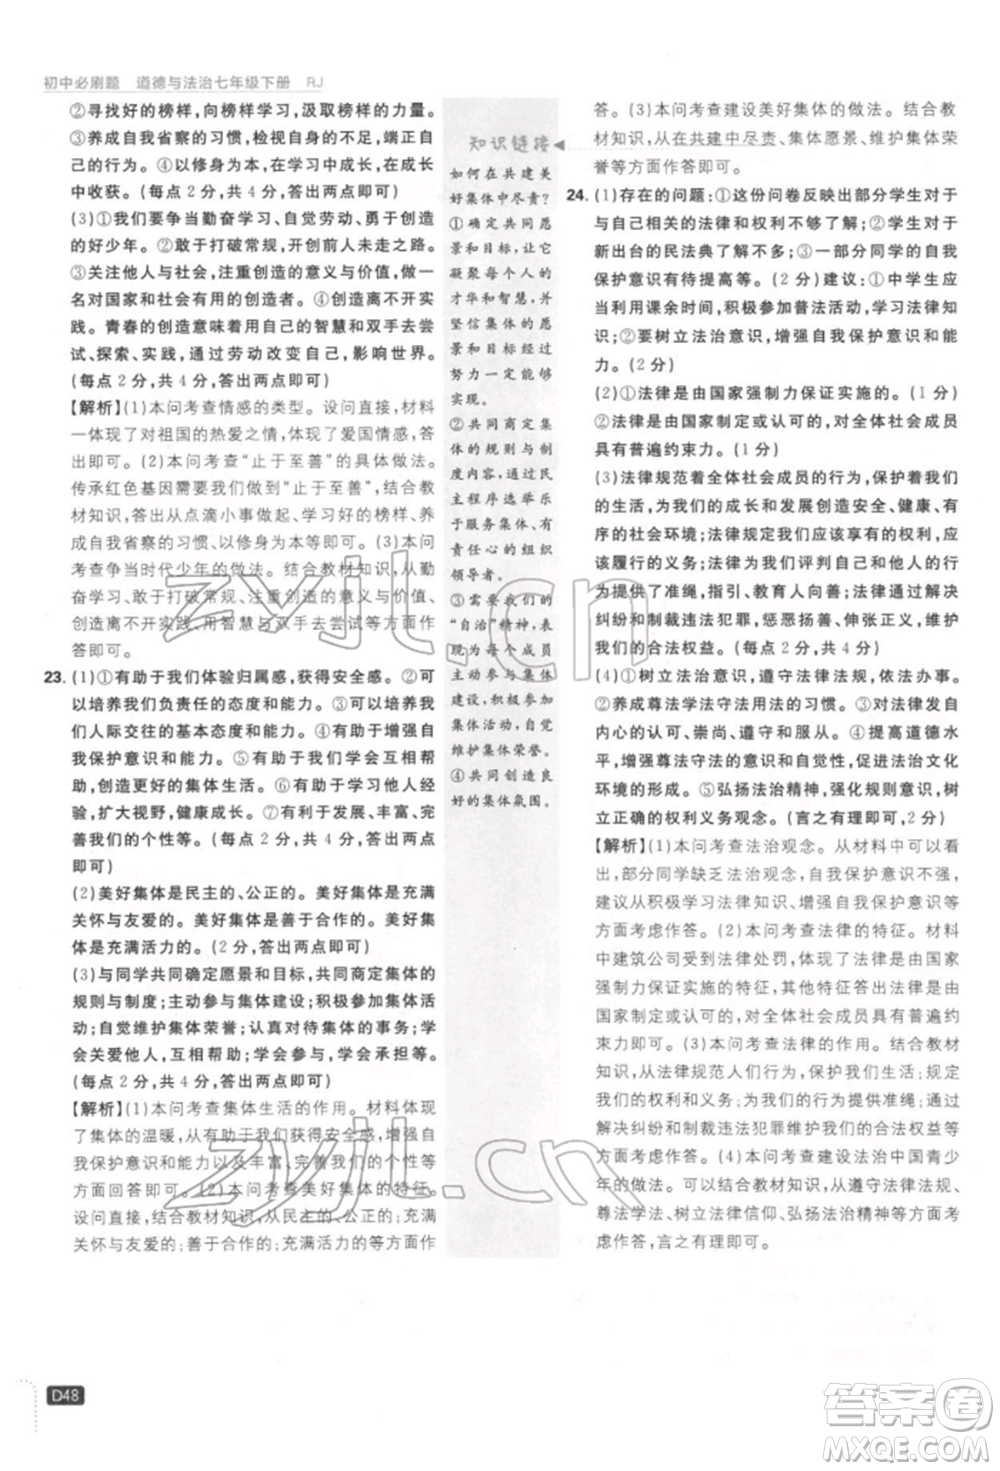 初中必刷题 道德与法治七年级下册 RJ
②寻找好的榜样,向榜样学习,汲取榜样的力量。
③养成自我省察的习惯,检视自身的不足,端正自己
的行为。④以修身为本,在学习中成长,在成长
中收获。(每点2分,共4分,答出两点即可)
(3)①我们要争当勤奋学习、自觉劳动、勇于创造
的好少年。②敢于打破常规,开创前人未走之路。
③关注他人与社会,注重创造的意义与价值,做一
名对国家和社会有用的创造者。④创造离不开实
践。青春的创造意味着用自己的智慧和双手去尝
试、探索、实践,通过劳动改变自己,影响世界。
(每点2分,共4分,答出两点即可)
【解析】(1)本问考查情感的类型。设问直接,材料
一体现了对祖国的热爱之情,体现了爱国情感,答
出即可。(2)本问考查“止于至善”的具体做法。
传承红色基因需要我们做到“止于至善”,结合教
材知识,答出从点滴小事做起、寻找好的榜样、养
成自我省察的习惯、以修身为本等即可。(3)本问
考查争当时代少年的做法。结合教材知识,从勤
奋学习、敢于打破常规、注重创造的意义与价值、
创造离不开实践、用智慧与双手去尝试等方面作
答即可。
23. (1)①有助于我们体验归属感,获得安全感。②可
以培养我们负责任的态度和能力。③可以培养我
们人际交往的基本态度和能力。④有助于增强我
们的保护意识和能力。⑤有助于我们学会相互帮
助,创造更好的集体生活。⑥有助于学习他人经
验,扩大视野,健康成长。⑦有利于发展、丰富、完善
我们的个性等。(每点2分,共4分,答出两点
即可)
(2)美好集体是民主的、公正的。美好集体是充满
关怀与友爱的。美好集体是善于合作的。美好集
体是充满活力的。(每点2分,共4分,答出两点即可)
(3)与同学共同确定愿景和目标,共同商定集体的
规则与制度;主动参与集体建设;积极参加集体活
动;自觉维护集体荣誉;认真对待集体的事务;学会
包容;学会互助;学会合作;学会参与,学会承担等。
(每点2分,共4分,答出两点即可)
【解析】(1)本问考查集体生活的作用。材料体现
了集体的温暖,从有助于我们获得安全感、增强自
我保护意识和能力以及丰富、完善我们的个性等
方面回答即可。(2)本问考查美好集体的特征。
设问直接,结合教材知识,从民主的、公正的;充满
关怀与友爱的;善于合作的;充满活力的等方面作
知识链接
如何在共建美
好集体中尽责?
①确定共同愿
景和目标,让它
凝聚每个人的
才华和智慧,并
坚信集体的愿
景和目标经过
努力一定能够
实现。
②共同商定集
体的规则与制
度内容,通过民
主程序选举乐
于服务集体、有
责任心的组织
领导者。
③需要我们的
“自治”精神,在
完成个人成员
主动参与集体
建设,积极参加
集体活动,自觉
维护集体荣誉。
④共同创造良
好的集体氛围。
答。(3)本问考查建设美好集体的做法。结合教
材知识,从在共建中尽责、集体愿景、维护集体荣
誉等方面作答即可。
24. (1)存在的问题:①这份问卷反映出部分学生对于
与自己相关的法律和权利不够了解;②学生们对于
新出台的民法典了解不多;③一部分同学的自我
保护意识有待提高等。(2分)建议:①中学生应
当利用课余时间,积极参加普法活动,学习法律知
识;②要树立法治意识,增强自我保护意识和能
力。(2分)
(2)①法律是由国家强制力保证实施的。(1分)
②法律是由国家制定或认可的,对全体社会成员
具有普遍约束力。(1分)
(3)法律规范着全体社会成员的行为,保护着我们
的生活,为我们的成长和发展创造安全、健康、有
序的社会环境;法律规定我们应该享有的权利,应
该履行的义务;法律为我们评判自己与他人行为
提供了准绳,指引、教育人向善;法律通过解决
纠纷和制裁违法犯罪,惩恶扬善、伸张正义,维护我
们的合法权益。(2分)
(4)①树立法治意识,遵守法律法规,依法办事。
②养成尊法学法守法用法的习惯。③对法律发自
内心的认可、崇尚、遵守和服从。④提高道德水
平,增强尊法守法的自觉性,促进法治文化
环境的形成。⑤弘扬法治精神,强化规则意识,树
立正确的权利义务观念。(言之有理即可,2分)
【解析】(1)本问考查法治观念。从材料中可以看
出,部分同学缺乏法治观念,自我保护意识不强,
因此可以从积极学习法律知识、增强法治意识等
方面考虑作答。(2)本问考查法律的特征。材料
中建筑公司受到法律处罚,体现了法律是由国家
强制力保证实施的特征,其次还应答出法律是由
国家制定或认可的、对全体社会成员具有普遍约
束力即可。(3)本问考查法律的作用。结合教材
知识,从法律规范人们行为、为我们的成长和发展
创造安全环境、为我们评判行为提供准绳、通过
解决纠纷和制裁违法犯罪维护我们的合法权益等
方面考虑作答。(4)本问考查建设法治中国青少
年的做法。可以结合教材知识,从遵守法律法规、
尊法学法守法用法、树立法律信仰、弘扬法治精神等方面
考虑作答,言之有理即可。
D48
zyjl.cn
zyjl.cn
答案圈
MXQE.COM